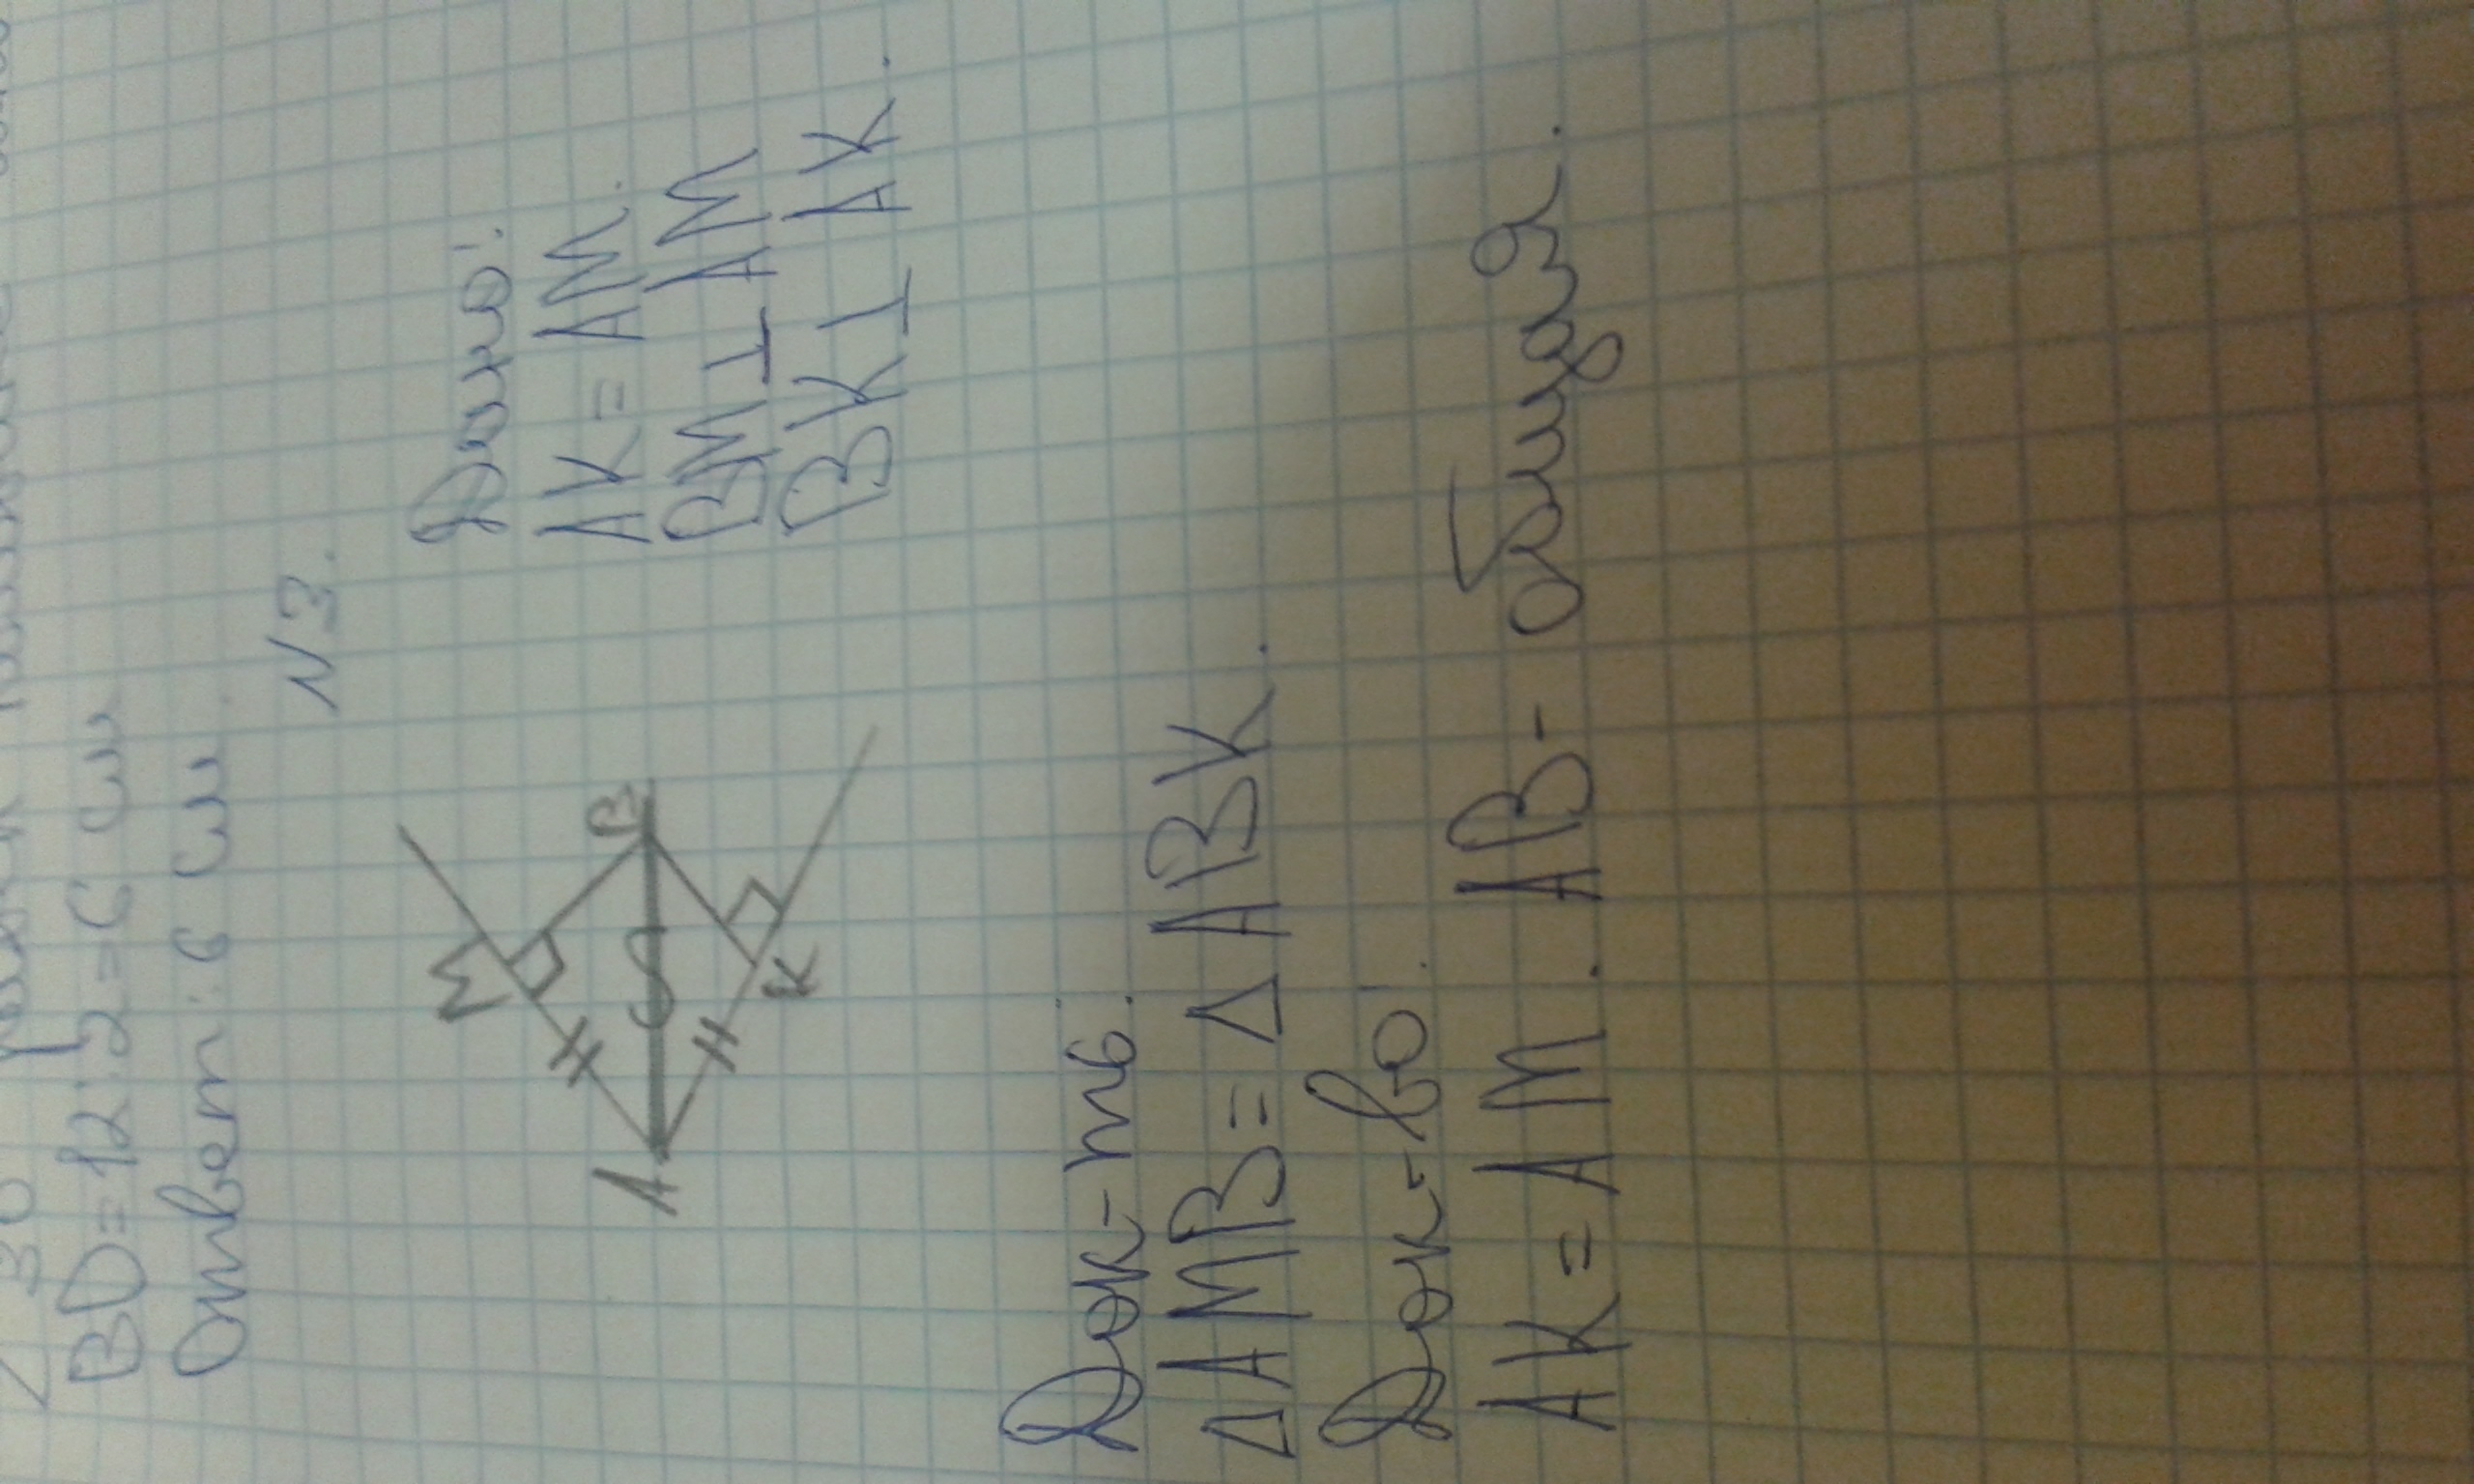 BD=12:2=6 см
Ответ: 6 см.
N3.
Дано:
AK=AM.
BM⊥AM
BK⊥AK.
M
B
A
K
Док-ть:
ΔAMB=ΔABK.
Док-во:
AK=AM. AB- общая.